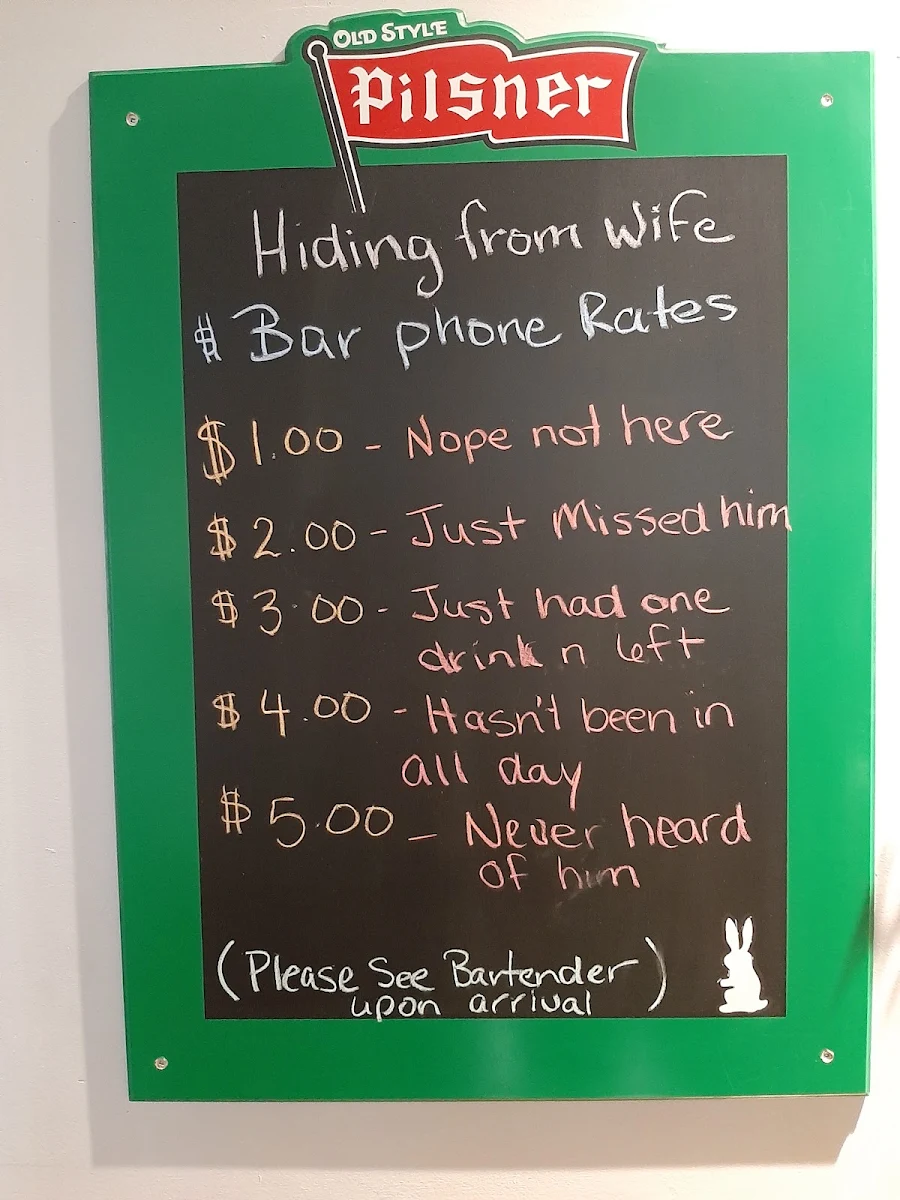 OLD STYLE
Pilsner
Hiding from Wife
$ Bar phone Rates
$1.00 - Nope not here
$2.00 - Just Missed him
$3.00 - Just had one
drink n left
$4.00 - Hasn't been in
all day
$5.00 - Never heard
of him
(Please See Bartender
upon arrival)